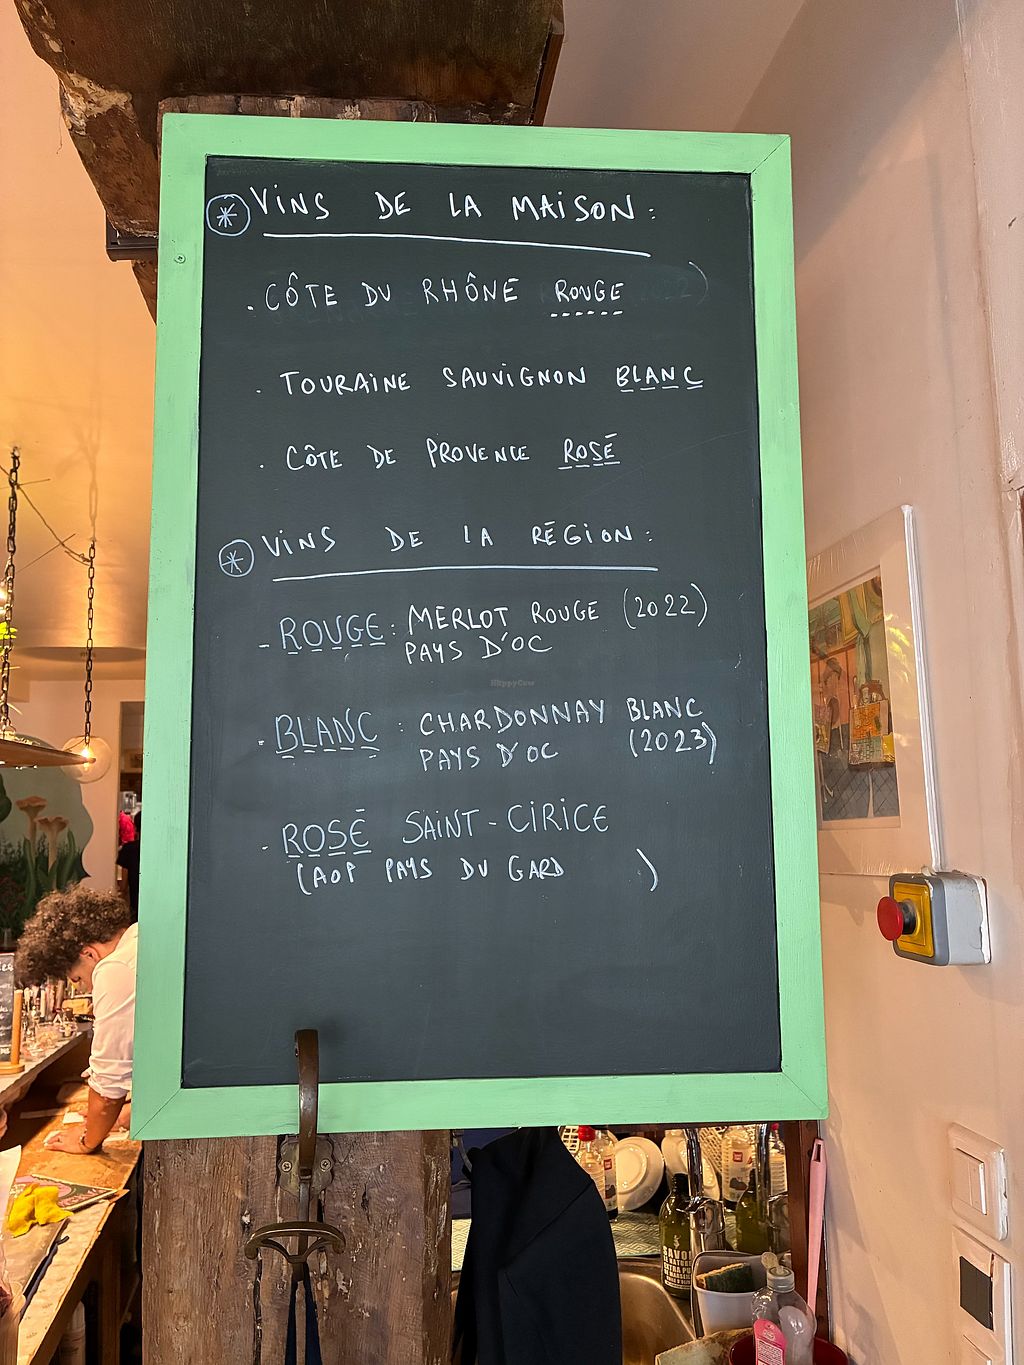 * VINS DE LA MAISON :
. CÔTE DU RHÔNE ROUGE )
. TOURAINE SAUVIGNON BLANC
. CÔTE DE PROVENCE ROSÉ
* VINS DE LA RÉGION :
- ROUGE : MERLOT ROUGE (2022)
PAYS D'OC
. BLANC : CHARDONNAY BLANC
PAYS D'OC (2023)
. ROSÉ SAINT-CIRICE
(AOP PAYS DU GARD )
HappyCow
SAVON
EXTRA PUR